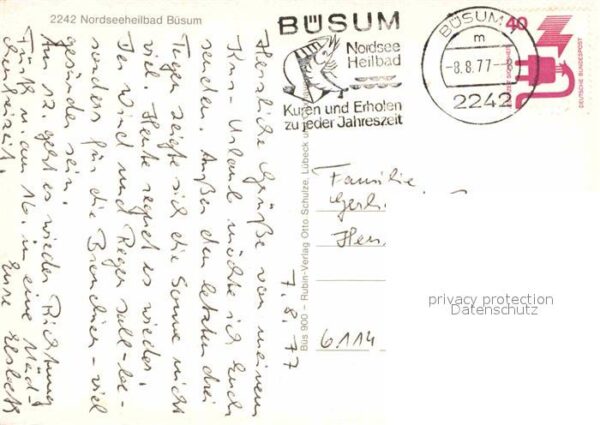 2242 Nordseeheilbad Büsum
BÜSUM
Nordsee
Heilbad
Kuren und Erholen
zu jeder Jahreszeit
BÜSUM
m
-8.8.77-
2242
40
DEUTSCHE BUNDESPOST
7.8.77
Herzliche Grüße von meinem
Kur-Urlaub möchte ich Euch
senden. Außer den letzten drei
Tagen zeigte sich die Sonne nicht
viel. Heute regnet es wieder.
Der Wind und Regen soll be-
sonders für die Bronchien viel
gesünder sein.
Am 12. geht es wieder Richtung
u. am 16. in eine
Eure
Büs 900 - Rubin-Verlag Otto Schulze, Lübeck
Familie
Gerh.
6114
privacy protection
Datenschutz